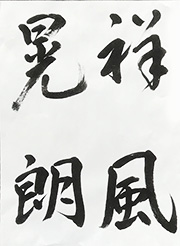 祥風
晃朗